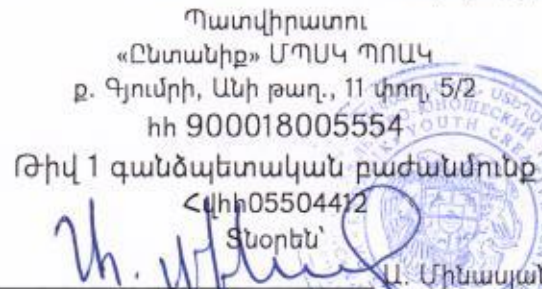 Պատվիրատու
«Ընտանիք» ՄՊՍԿ ՊՈԱԿ
ք. Գյումրի, Անի թաղ., 11 փող, 5/2
հհ 900018005554
Թիվ 1 գանձպետական բաժանմունք
ՀՎՀՀ05504412
Տնօրեն՝
Ա. Մինասյան
YOUTH